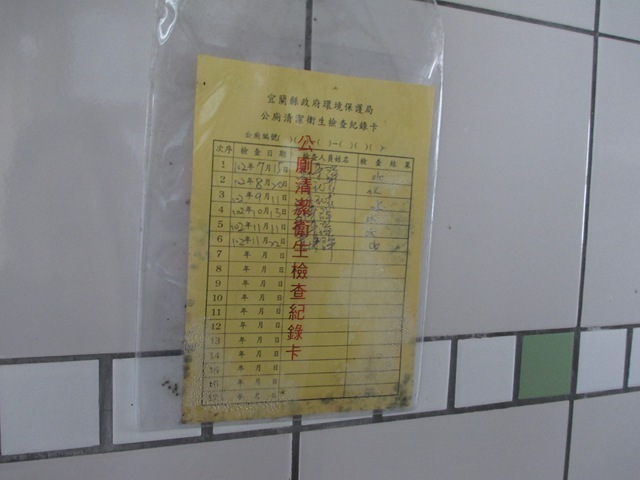 宜蘭縣政府環境保護局
公廁清潔衛生檢查紀錄卡
公廁編號( )( )( )－( )( )( )
公廁清潔衛生檢查紀錄卡
次序 檢查日期 檢查人員姓名 檢查結果
1 102年7月15日
2 102年8月20日
3 102年9月11日
4 102年10月13日
5 102年11月11日
6 102年11月22日
7 年 月 日
8 年 月 日
9 年 月 日
10 年 月 日
11 年 月 日
12 年 月 日
13 年 月 日
14 年 月 日
15 年 月 日
16 年 月 日
17 年 月 日